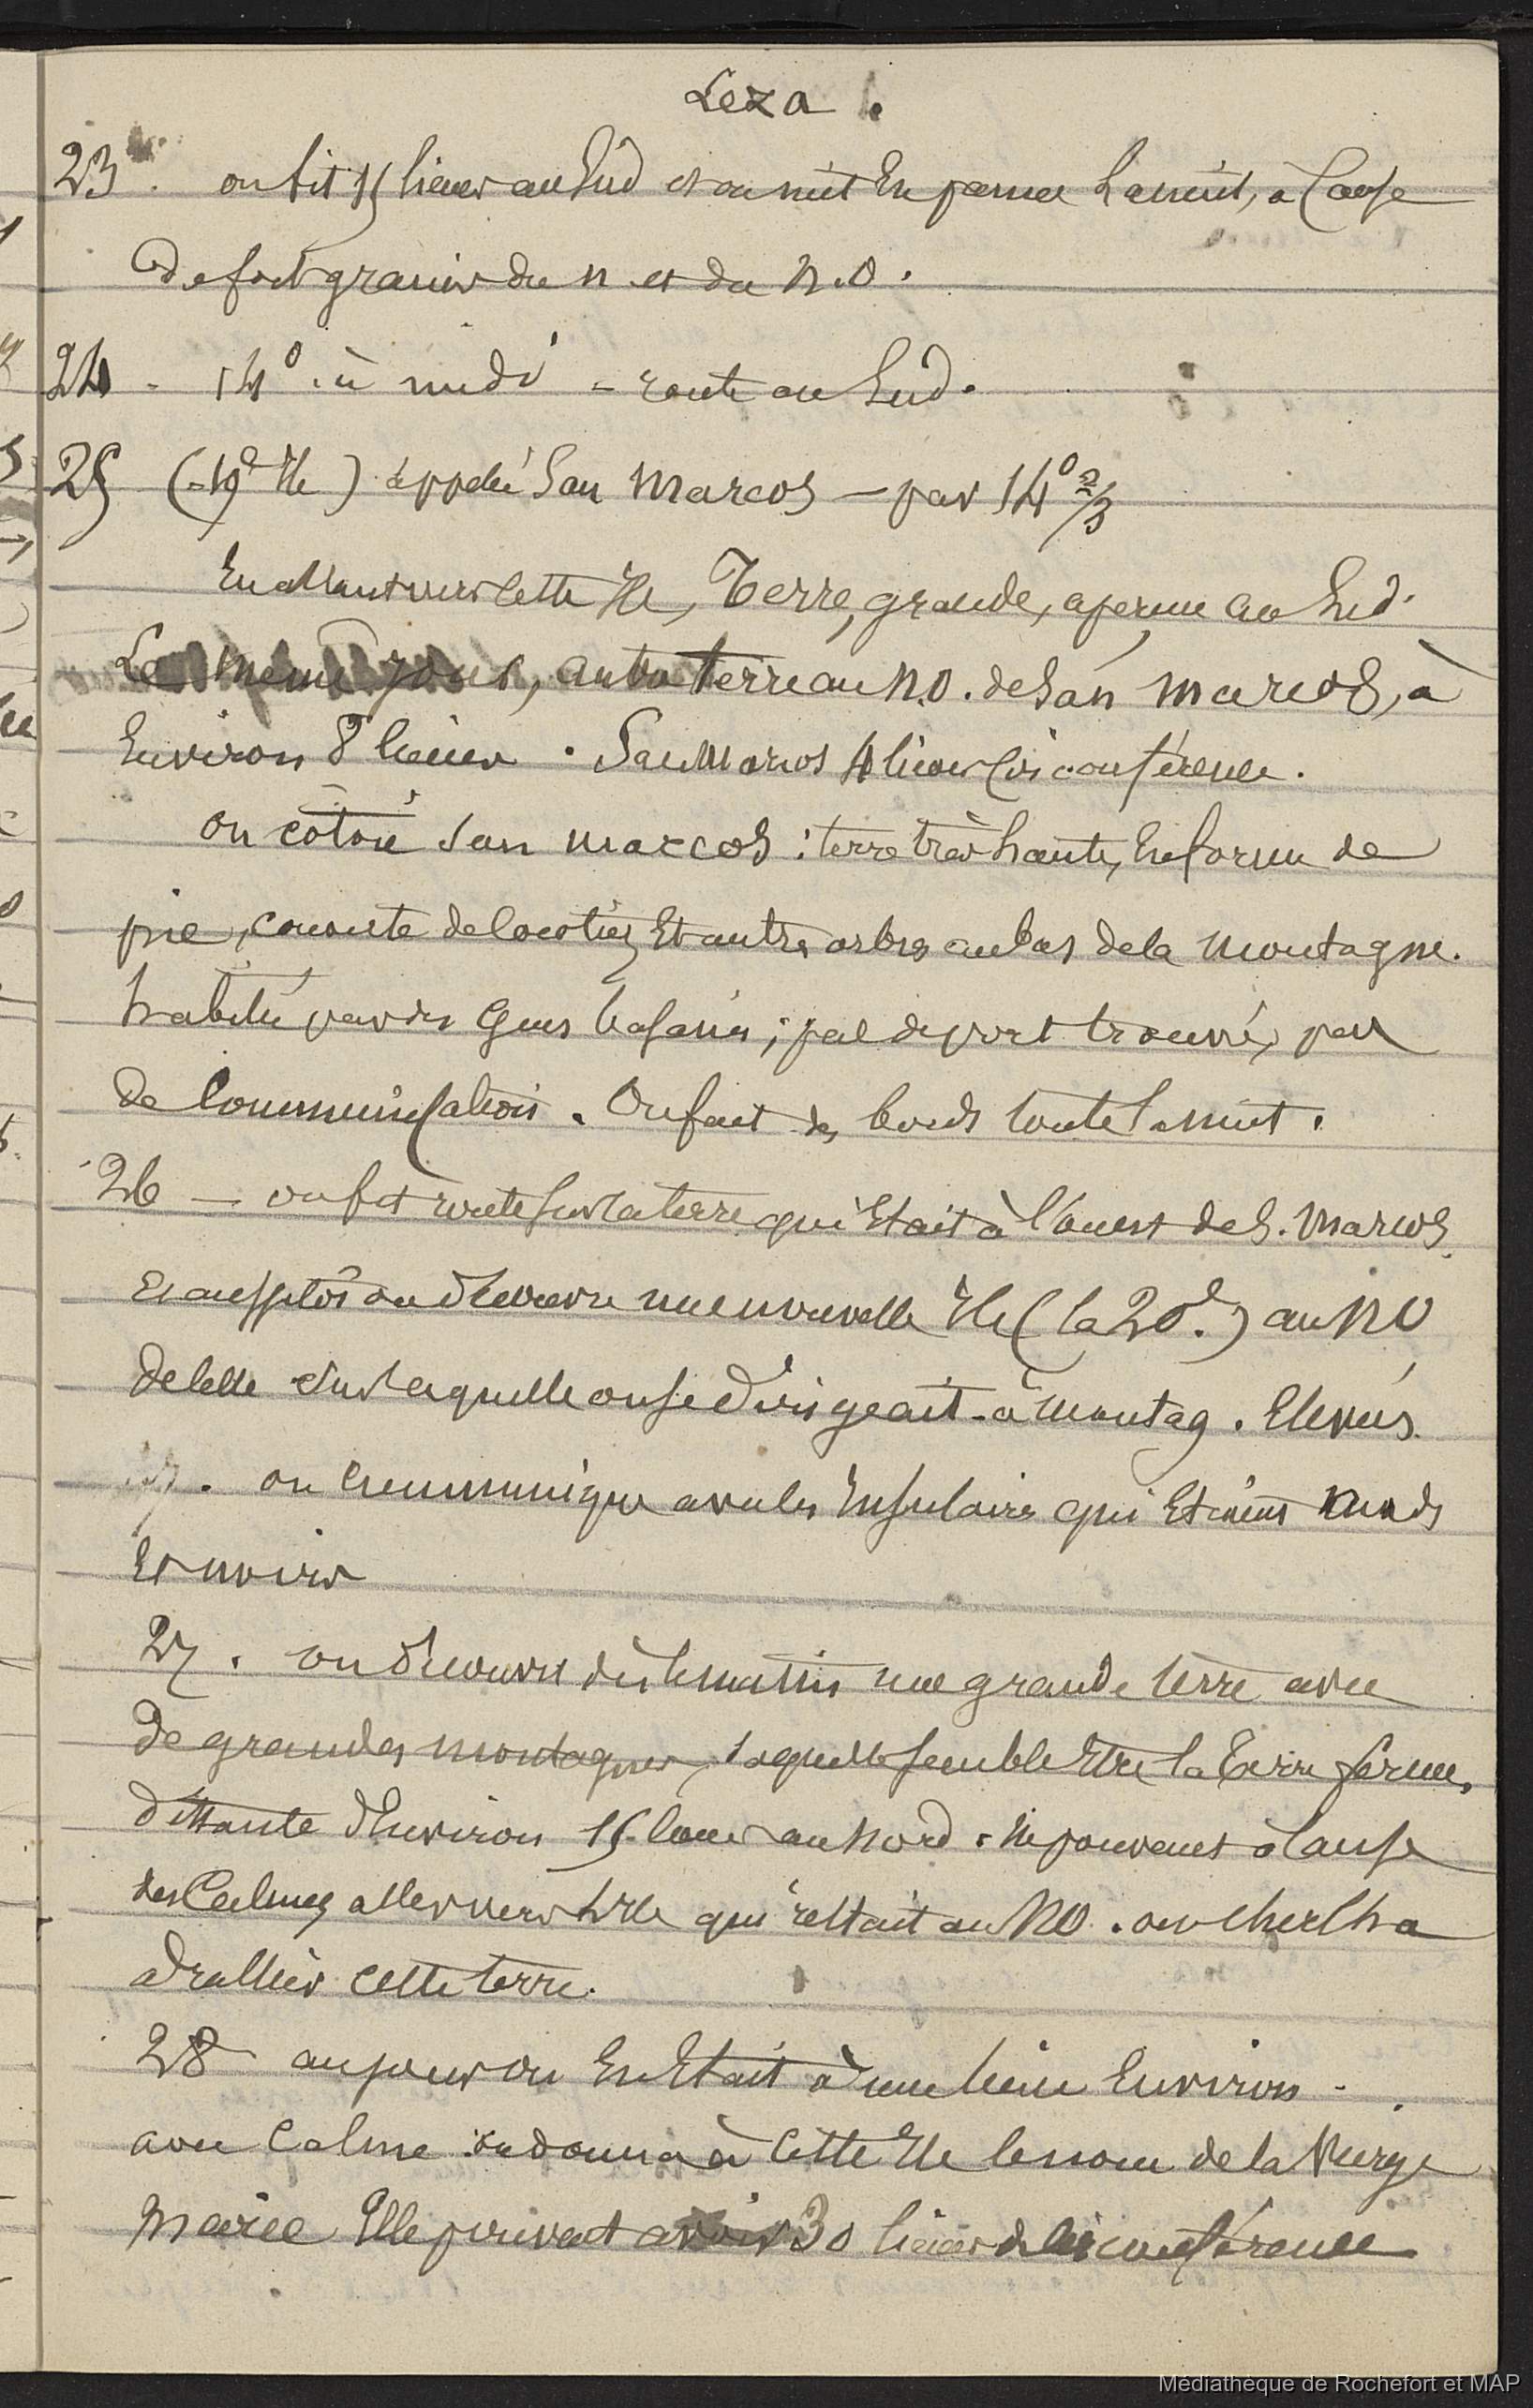 Leza.
23. on fit 15 lieues au Sud et on mit en panne la nuit, à Cause
de fort grains du n. et du N.O.
24 - 14° . à midi - route au Sud.
25 (19e Ile) appelée San Marcos — par 14° 2/3
En allant vers cette Ile, Terre, grande, aperçue au Sud.
Le même jour, autre terre au N.O. de San Marcos, à
Environ 8 lieues. San Marcos 4 lieues circonférence.
on côtoie San Marcos : terre très haute, En forme de
pic, couverte de Cocotiers Et autres arbres au bas de la Montagne.
habitée par des Gens basanés ; pas de port trouvé, pas
de Communication. On fait des bords toute la nuit.
26 — on fit route sur la terre qui Etait à l'ouest de S. Marcos
Et aussitôt on découvre une nouvelle Ile (la 20e.) au NO
de Celle sur laquelle on se dirigeait - à Montag. Elevées.
on Communique avec les Insulaires qui Etaient
Et noirs
27. on découvre dès le matin une grande terre avec
de grandes montagnes, laquelle semble Etre la Terre ferme,
distante d'Environ 15 lieues au Nord. Ne pouvant à Cause
des Calmes aller vers l'Ile qui restait au NO. on chercha
à rallier cette terre.
28 au jour on En Etait à une lieue Environ -
avec Calme on donna à Cette Ile le nom de la Vierge
Marie Elle pouvait avoir 30 lieues de circonférence
Médiathèque de Rochefort et MAP